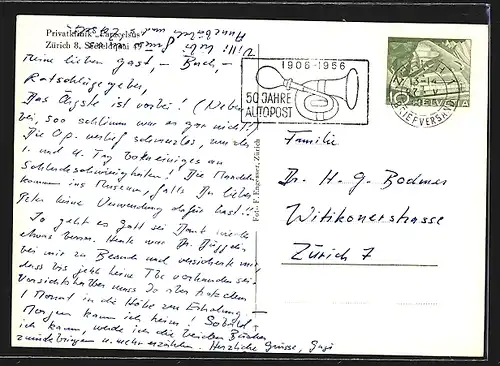 Privatklinik „Paracelsus"
Zürich 8, Seefeld
1906-1956
50 JAHRE
AUTOPOST
ZÜRICH 1
BRIEFVERSAND
HELVETIA
Phot. F. Engesser, Zürich
Meine lieben Gast-, Buch-,
Ratschlägegeber,
Das Ärgste ist vorbei! (Neben-
bei, soo schlimm war es gar nicht!)
Die Op. verlief schmerzlos, nur am
1. und 4. Tag bekam einiges an
Schluckschwierigkeiten! Die Mandeln
kommen ins Museum, falls Du lieber
Peter keine Verwendung dafür hast!!
So geht es Gott sei Dank wieder
etwas besser. Heute war Dr.
bei mir zu Besuch und versicherte mir,
dass bis jetzt keine Tbc vorhanden sei.
Vorsichtshalber muss ich aber trotzdem
1 Monat in die Höhe zur Erholung.
Morgen kann ich heim! Sobald
ich kann, werde ich die beiden Bücher
zurückbringen u. mehr erzählen. Herzliche Grüsse,
Familie
Dr. H. G. Bodmer
Witikonerstrasse
Zürich 7